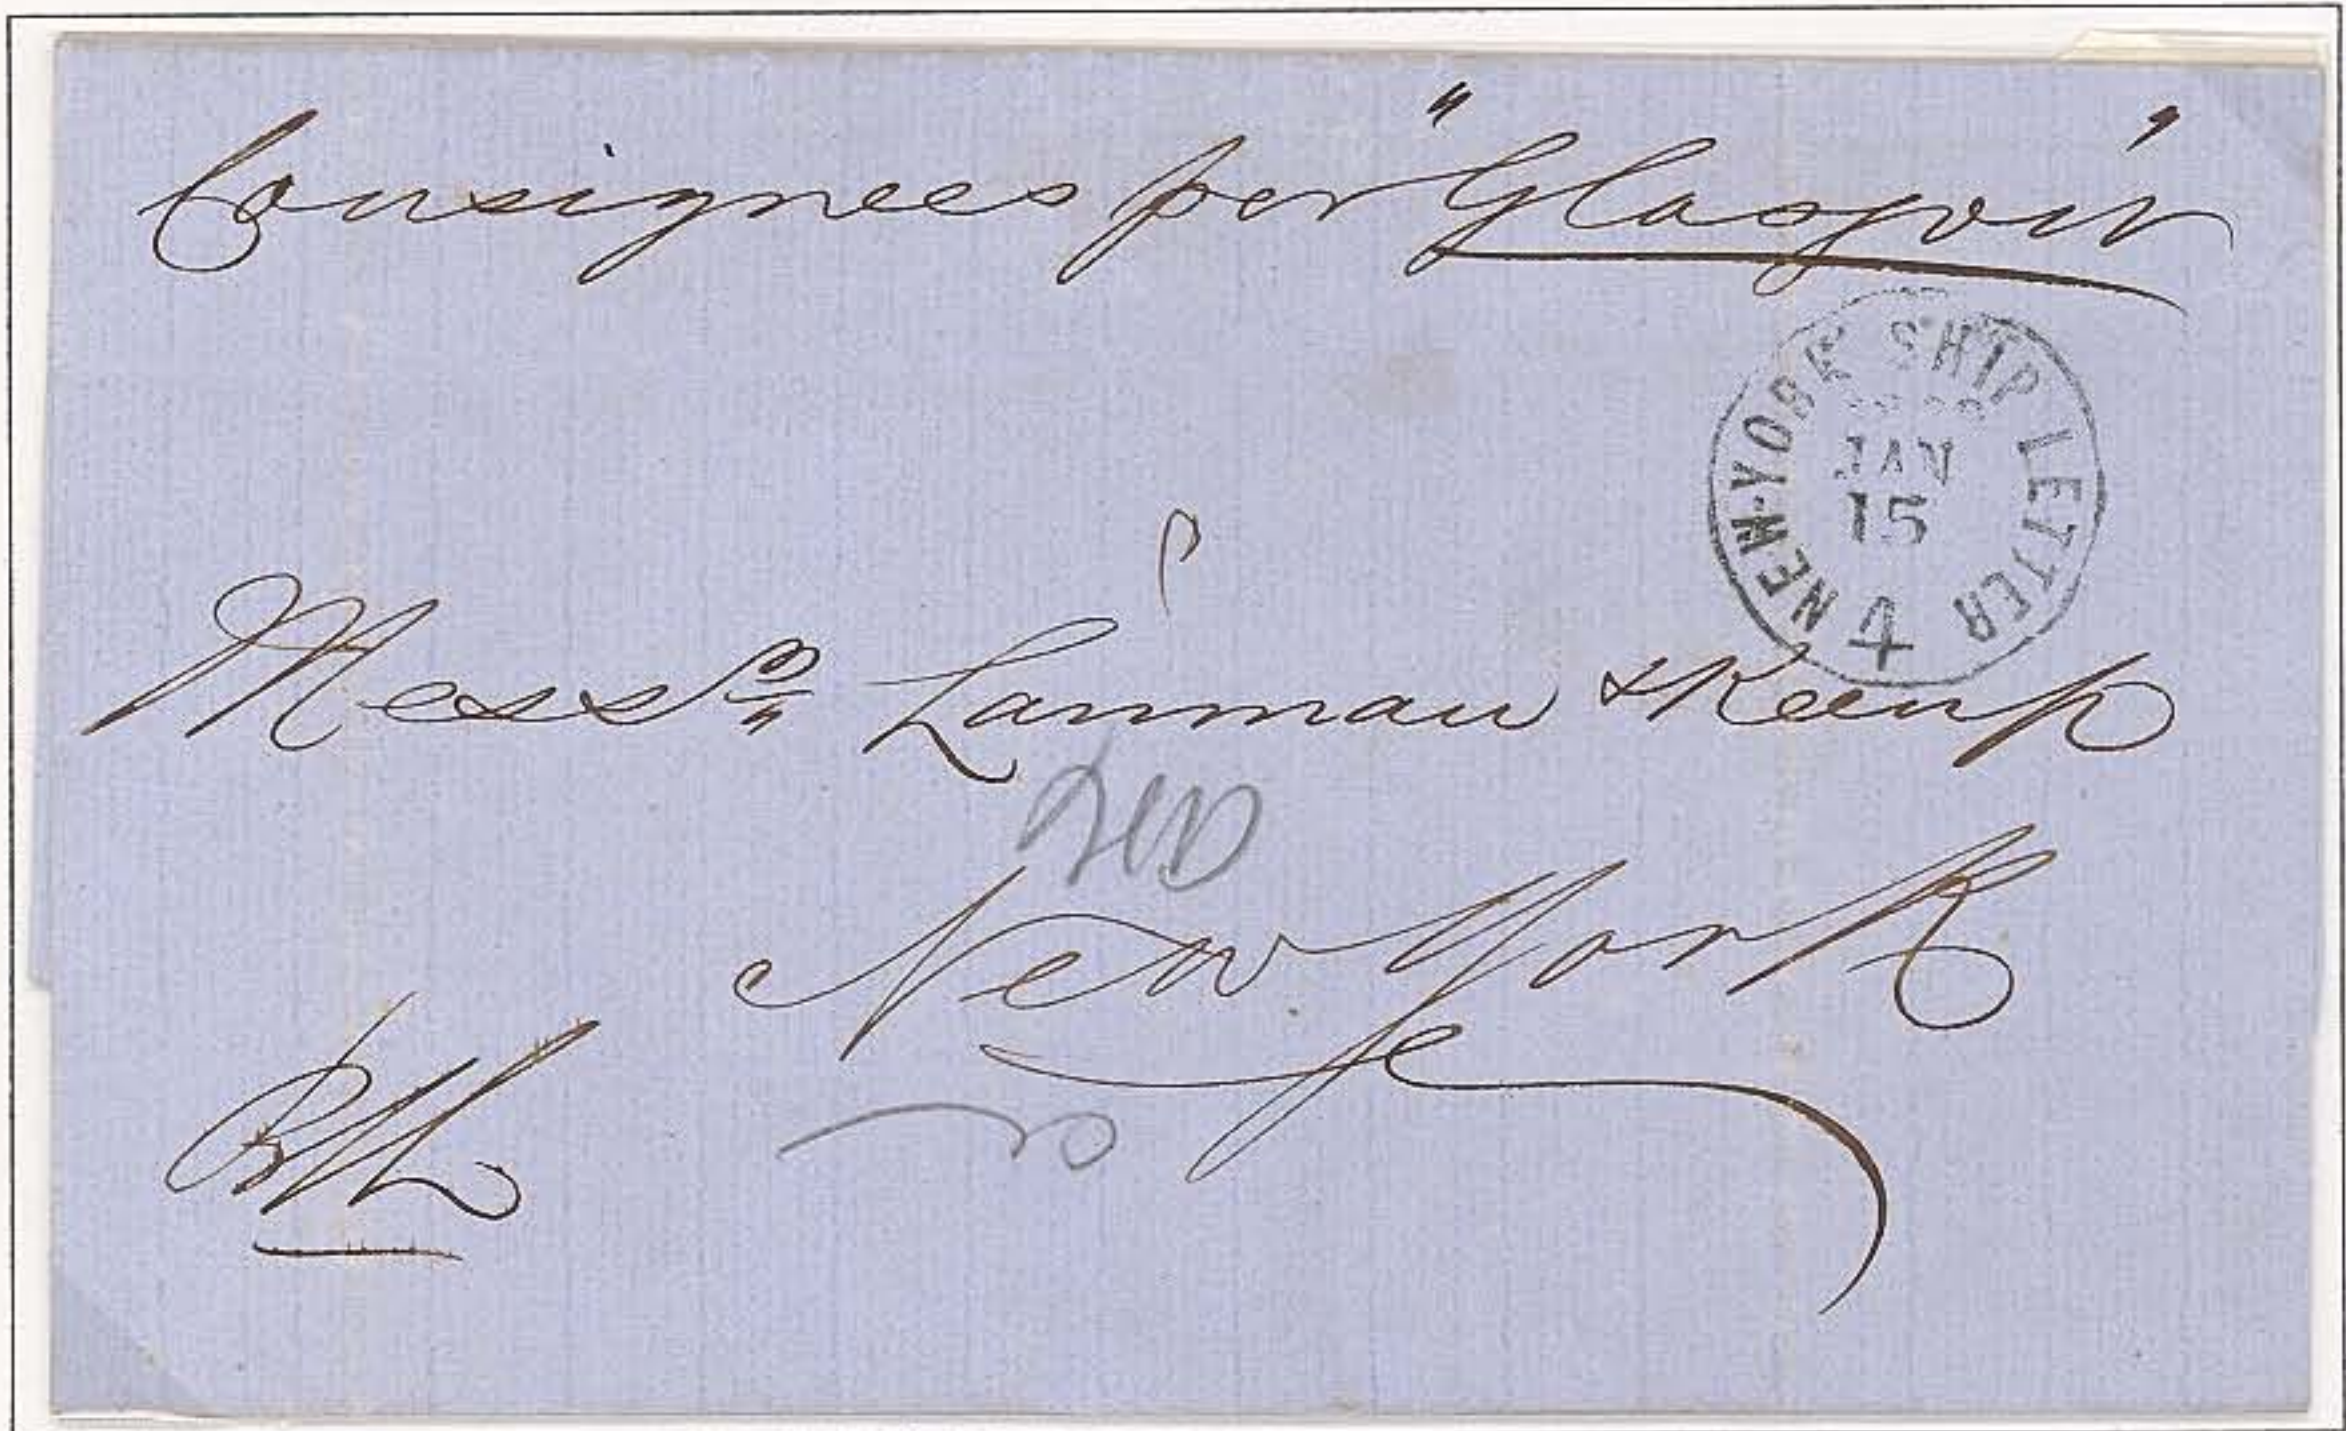 Consignees per "Glasgow"
NEW-YORK SHIP LETTER
JAN
15
4
Messrs Lanman & Kemp
New York